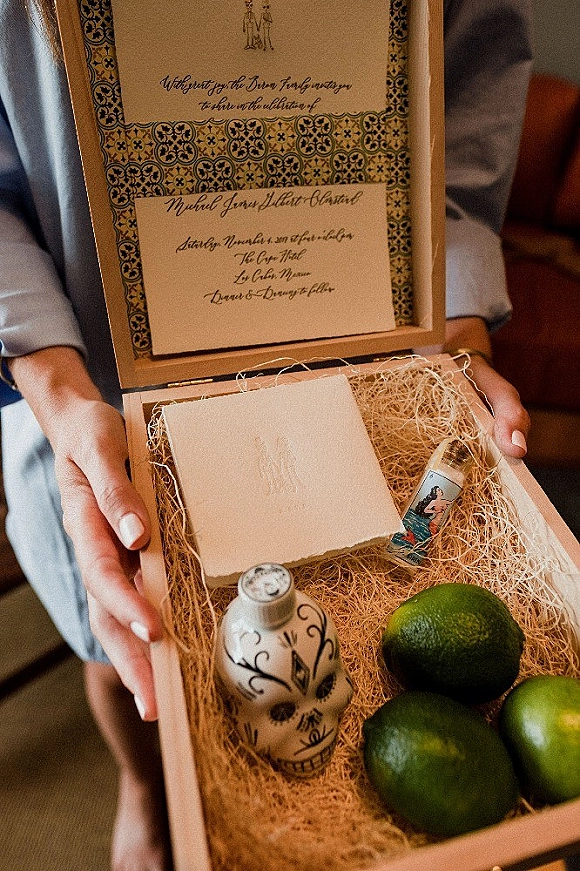 With great joy, the Boron Family invites you
to share in the celebration of
Michael James Gilbert & Olmstead
Saturday, November 4, 2017 at four o'clock
The Cape Hotel
Los Cabos, Mexico
Dinner & Dancing to follow